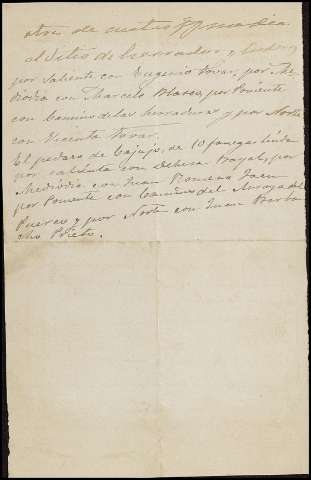 otra de cuatro y media
al Sitio de Cerradero y linda,
por saliente con Eugenio Tovar, por Me-
diodia con Marcelo Blasco, por Poniente
con Camino de las herraduras y por Norte
con Vicente Tovar.
El pedazo de Cajujo, de 10 fanegas linda
por saliente con Dehesa Boyal, por
Mediodia con Juan Romero Jaen
por Poniente con Camino del Arroyo del
Puerco y por Norte con Juan Barba
cho Prieto.